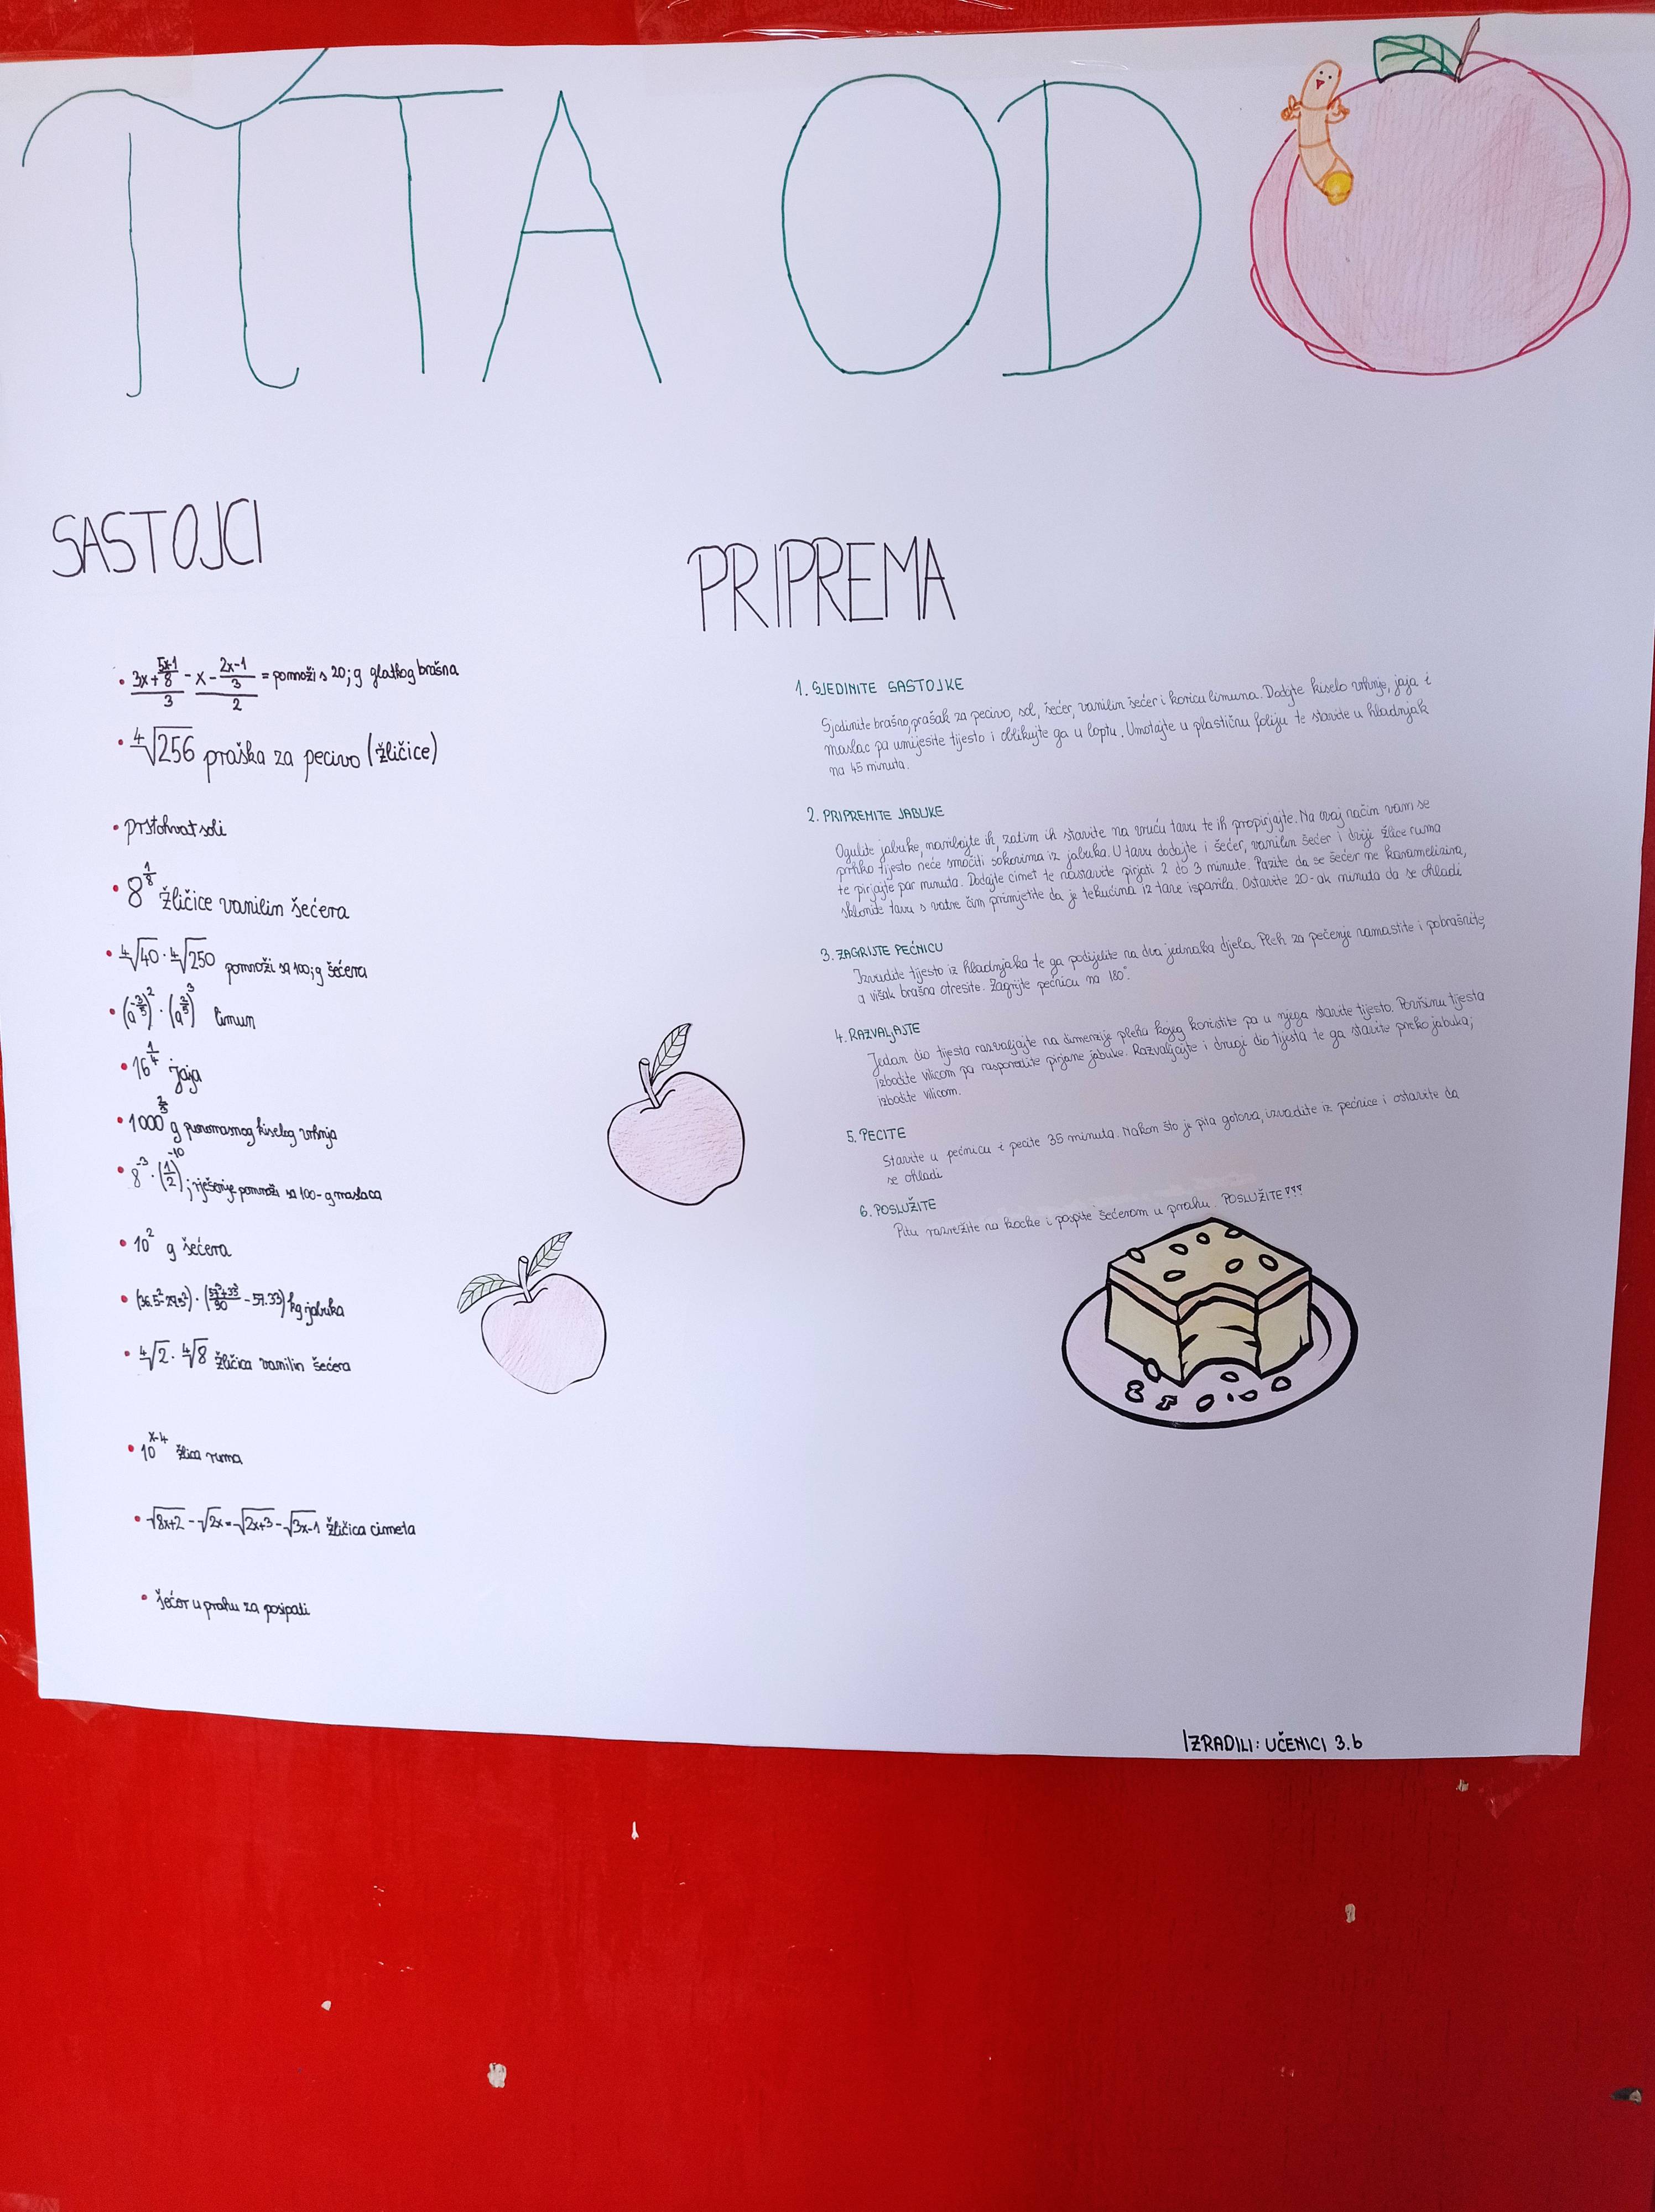 πTA OD
SASTOJCI
• (3x + (5x-1)/8)/3 - (x - (2x-1)/3)/2 = pomnoži s 20; g glatkog brašna
• ∜256 praška za pecivo (žličice)
• prstohvat soli
• 8^(1/8) žličice vanilin šećera
• ∜40 · ∜250 pomnoži sa 100; g šećera
• limun
• 16^(1/4) jaja
• 1000^(2/3) g punomasnog kiselog vrhnja
• 8^-3 · (1/2)^-10; rješenje pomnoži sa 100 - g maslaca
• 10² g šećera
• kg jabuka
• ∜2 · ∜8 žličica vanilin šećera
• 10^(x-4) žlica ruma
• √(8x+2) - √(2x) = √(2x+3) - √(3x-1) žličica cimeta
• šećer u prahu za posipati
PRIPREMA
1. SJEDINITE SASTOJKE
Sjedinite brašno, prašak za pecivo, sol, šećer, vanilin šećer i koricu limuna. Dodajte kiselo vrhnje, jaja i
maslac pa umijesite tijesto i oblikujte ga u loptu. Umotajte u plastičnu foliju te stavite u hladnjak
na 45 minuta.
2. PRIPREMITE JABUKE
Ogulite jabuke, naribajte ih, zatim ih stavite na vruću tavu te ih propirjajte. Na ovaj način vam se
prhko tijesto neće smočiti sokovima iz jabuka. U tavu dodajte i šećer, vanilin šećer i dvije žlice ruma
te pirjajte par minuta. Dodajte cimet te nastavite pirjati 2 do 3 minute. Pazite da se šećer ne karamelizira,
sklonite tavu s vatre čim primjetite da je tekućina iz tave isparila. Ostavite 20-ak minuta da se ohladi
3. ZAGRIJTE PEĆNICU
Izvadite tijesto iz hladnjaka te ga podijelite na dva jednaka djela. Pleh za pečenje namastite i pobrašnite,
a višak brašna otresite. Zagrijte pećnicu na 180°.
4. RAZVALJAJTE
Jedan dio tijesta razvaljajte na dimenzije pleha kojeg koristite pa u njega stavite tijesto. Površinu tijesta
izbodite vilicom pa rasporedite pirjane jabuke. Razvaljajte i drugi dio tijesta te ga stavite preko jabuka;
izbodite vilicom.
5. PECITE
Stavite u pećnicu i pecite 35 minuta. Nakon što je pita gotova, izvadite iz pećnice i ostavite da
se ohladi
6. POSLUŽITE
Pitu razrežite na kocke i pospite šećerom u prahu. POSLUŽITE!!!
IZRADILI: UČENICI 3.b